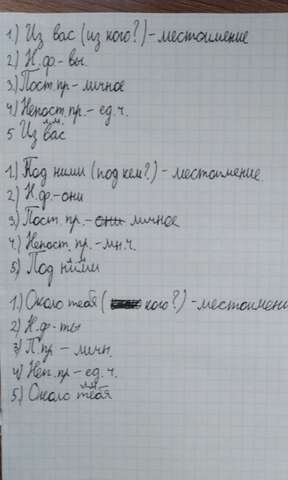 1.) Из вас (из кого?) - местоимение
2) Н.ф - вы.
3) Пост.пр - личное
4) Непост.пр. - ед.ч.
5 Из вас
1.) Под ними (под кем?.) - местоимение.
2) Н.ф. - они
3) Пост. пр. - они личное
4.) Непост. пр. - мн.ч.
5) Под ними
1.) Около тебя ( кого?) - местоимени
2) Н.ф - ты
3) П.пр - личн.
4) Неп.пр - ед.ч.
5) Около тебя